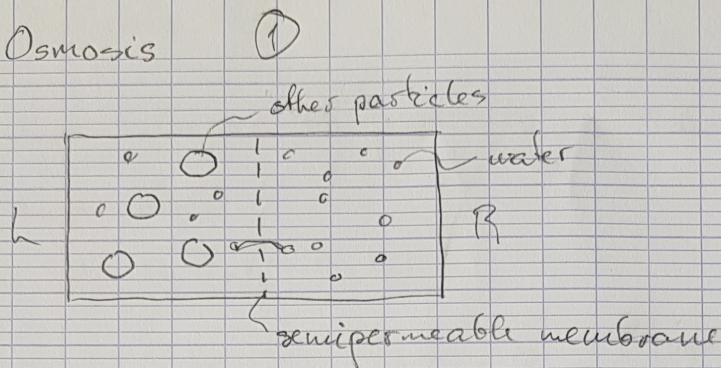 Osmosis 1
other particles
water
L R
semipermeable membrane